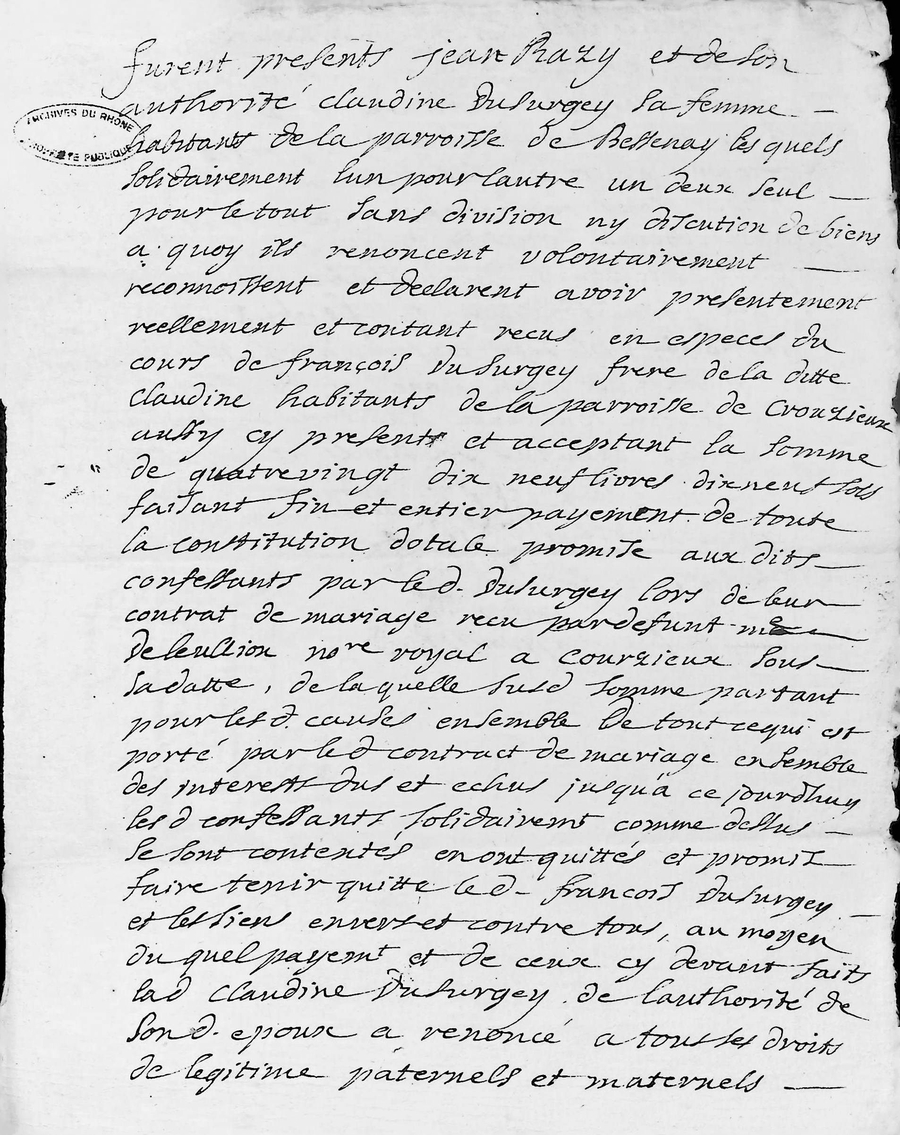 furent présents jean Razy et de son
authorité claudine Dusurgey sa femme
ARCHIVES DU RHONE
PUBLIQUE
habitants de la parroisse de Bessenay les quels
solidairement lun pour lautre un deux seul
pour le tout sans division ny discution de biens
a quoy ils renoncent volontairement
reconnoissent et declarent avoir presentement
reellement et contant recus en especes du
cours de françois Dusurgey frere de la ditte
claudine habitants de la parroisse de Crouzieux
aussy cy present et acceptant la somme
de quatrevingt dix neuf livres dixneuf sols
faisant fin et entier payement de toute
la constitution dotale promise aux dits
confessants par le d. Dusurgey lors de leur
contrat de mariage recu par defunt me
deleullion nore royal a Courzieux sous
sa datte, de la quelle susd somme partant
pour les d. causes ensemble De tout cequi est
porté par le d contract de mariage ensemble
des interests dus et echus jusqu'a ce jourdhuy
les d confessants solidairemt comme dessus
se sont contentés en ont quittés et promis
faire tenir quitte le d. francois Dusurgey
et les siens envers et contre tous, au moyen
du quel payemt et de ceux cy devant faits
la d claudine Dusurgey de lauthorité de
son d. epoux a renoncé a tous ses droits
de legitime paternels et maternels